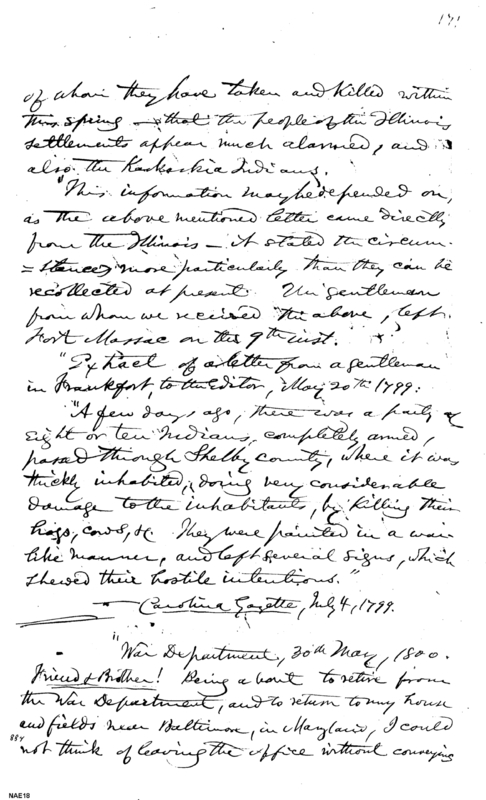 171
of whom they have taken and killed within
this spring — that the people of the Illinois
settlements appear much alarmed, and
also the Kaskaskia Indians.
"This information may be depended on,
as the above mentioned letter came directly
from the Illinois — it stated the circum-
=stances more particularly than they can be
recollected at present. The gentleman
from whom we received the above, left
Fort Massac on the 9th inst."
"Extract of a letter from a gentleman
in Frankfort, to the Editor, May 20th 1799:
"A few days ago, there was a party of
eight or ten Indians, completely armed,
passed through Shelby county, where it was
thickly inhabited, doing very considerable
damage to the inhabitants, by killing their
hogs, cows, &c. They were painted in a war-
like manner, and left several signs, which
shewed their hostile intentions."
— Carolina Gazette, July 4, 1799.
"War Department, 30th May, 1800.
Friend & Brother! Being about to retire from
the War Department, and to return to my house
and fields near Baltimore, in Maryland, I could
not think of leaving the office without conveying
NAE18